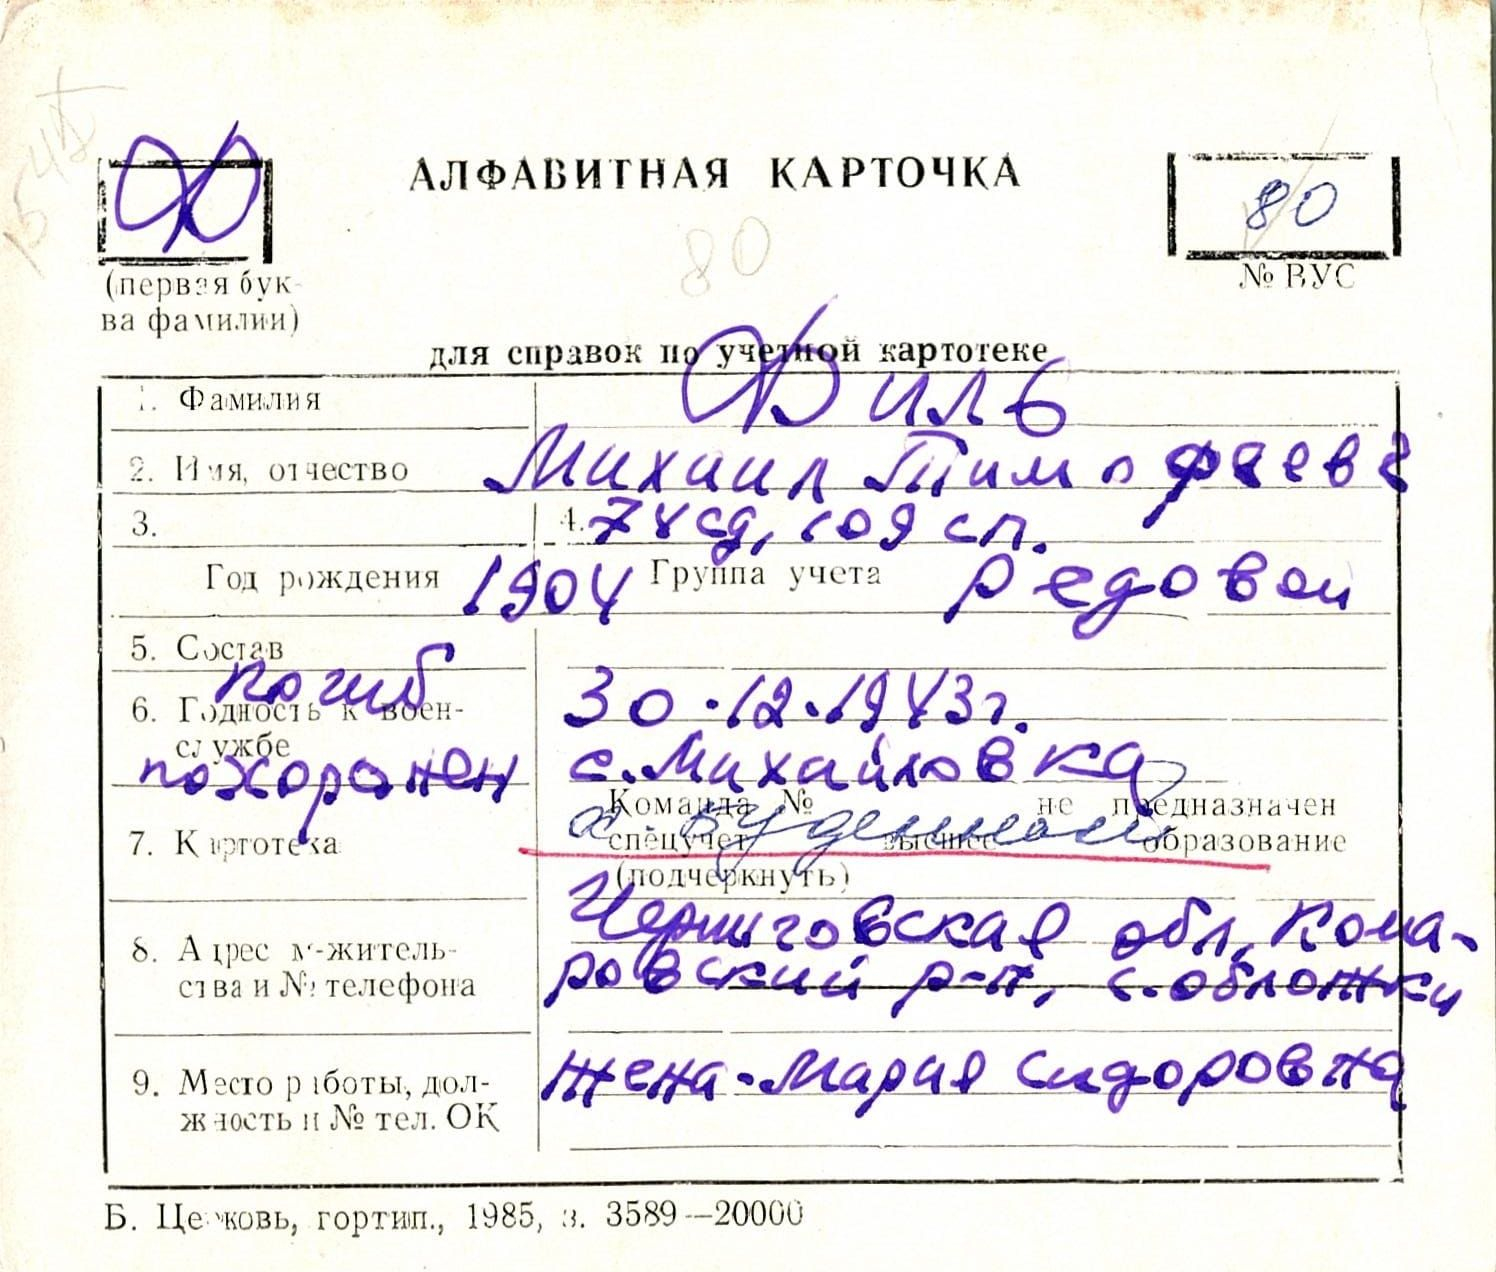 Ф
АЛФАВИТНАЯ КАРТОЧКА
80
80
(первая бук-
ва фамилии)
№ ВУС
для справок по учетной картотеке
1. Фамилия Филь
2. Имя, отчество Михаил Тимофееве
3. 4. 74 сд, 109 сп.
Год рождения 1904 Группа учета редовой
5. Состав
погиб 30.12.1943г.
6. Годность к воен-
службе
похоронен с. Михайловка
Команда № не предназначен
7. Картотека
спецучет высшее образование
(подчеркнуть)
Черниговская обл, Кома-
8. Адрес м-житель-
ровский р-н, с. обложки
ства и № телефона
9. Место работы, дол- жена - Мария Сидоровна
жность и № тел. ОК
Б. Церковь, гортип., 1985, з. 3589—20000